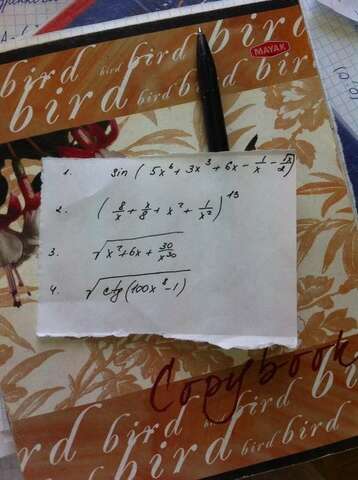 bird bird bird bird
MAYAK
bird bird bird
1. sin (5x⁶ + 3x³ + 6x - 1/x - √x/2)
2. (8/x + x/8 + x² + 1/x²)¹³
3. √(x² + 6x + 30/x³⁰)
4. √(ctg (100x⁸ - 1))
Copybook
bird bird bird
bird bird bird